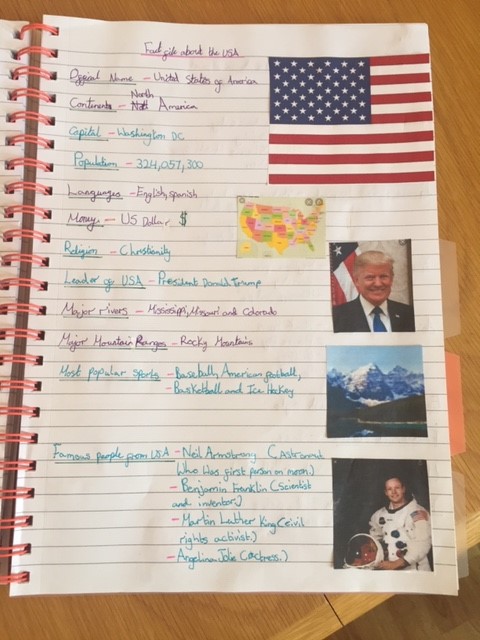 Fact file about the USA
Official Name - United States of America
North
Continent - America
Capital - Washington DC
Population - 324,057,300
Languages - English, spanish
Money - US Dollar $
Religion - Christianity
Leader of USA - President Donald Trump
Major rivers - Mississippi, Missouri and Colorado
Major Mountain Ranges - Rocky Mountains
Most popular sports - Baseball, American football,
- Basketball and Ice Hockey
Famous people from USA - Neil Armstrong (Astronaut
who was first person on moon.)
- Benjamin Franklin (Scientist
and inventor.)
- Martin Luther King (civil
rights activist.)
- Angelina Jolie (actress.)